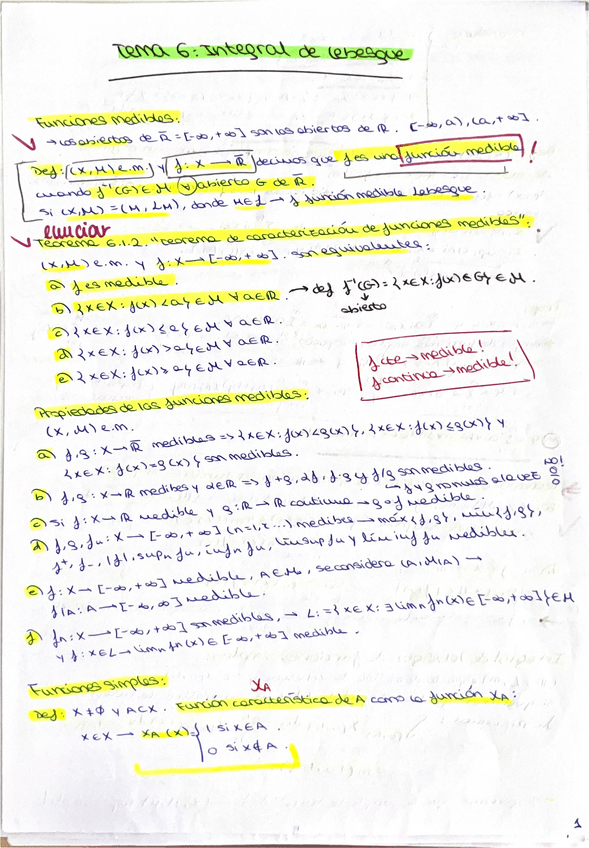 Tema 6: Integral de Lebesgue
Funciones medibles:
→ Los abiertos de R̅ = [-∞, +∞] son los abiertos de R. [-∞, a), (a, +∞].
Def: (X, M) e.m. y f: X → R̅ decimos que f es una función medible!
cuando f⁻¹(G) ∈ M ∀ abierto G de R̅.
Si (X, M) = (M, L_M), donde M ∈ L → f función medible Lebesgue.
enunciar
Teorema 6.1.2. "Teorema de caracterización de funciones medibles":
(X, M) e.m. y f: X → [-∞, +∞]. Son equivalentes:
a) f es medible.
b) {x ∈ X: f(x) < a} ∈ M ∀ a ∈ R. → def f⁻¹(G) = {x ∈ X: f(x) ∈ G} ∈ M.
abierto
c) {x ∈ X: f(x) ≤ a} ∈ M ∀ a ∈ R.
d) {x ∈ X: f(x) > a} ∈ M ∀ a ∈ R.
e) {x ∈ X: f(x) ≥ a} ∈ M ∀ a ∈ R.
f cte → medible!
f continua → medible!
Propiedades de las funciones medibles:
(X, M) e.m.
a) f, g: X → R̅ medibles => {x ∈ X: f(x) < g(x)}, {x ∈ X: f(x) ≤ g(x)} y
{x ∈ X: f(x) = g(x)} son medibles.
b) f, g: X → R medibles y α ∈ R => f+g, αf, f·g y f/g son medibles.
→ f y g no nulos a la vez NO! 0/0
c) si f: X → R medible y g: R → R continua → g∘f medible.
d) f, g, fn: X → [-∞, +∞] (n=1, 2, ...) medibles → máx{f, g}, mín{f, g},
f⁺, f₋, |f|, supn fn, ínfn fn, lím sup fn y lím inf fn medibles.
e) f: X → [-∞, +∞] medible, A ∈ M, se considera (A, M|A) →
f|A: A → [-∞, ∞] medible.
f) fn: X → [-∞, +∞] son medibles, → L := {x ∈ X: ∃ límn fn(x) ∈ [-∞, +∞]} ∈ M
y f: x ∈ L → límn fn(x) ∈ [-∞, +∞] medible.
Funciones simples:
χA
Def: X ≠ ∅ y A ⊂ X. Función característica de A como la función χA:
x ∈ X → χA(x) = { 1 si x ∈ A.
0 si x ∉ A.
1